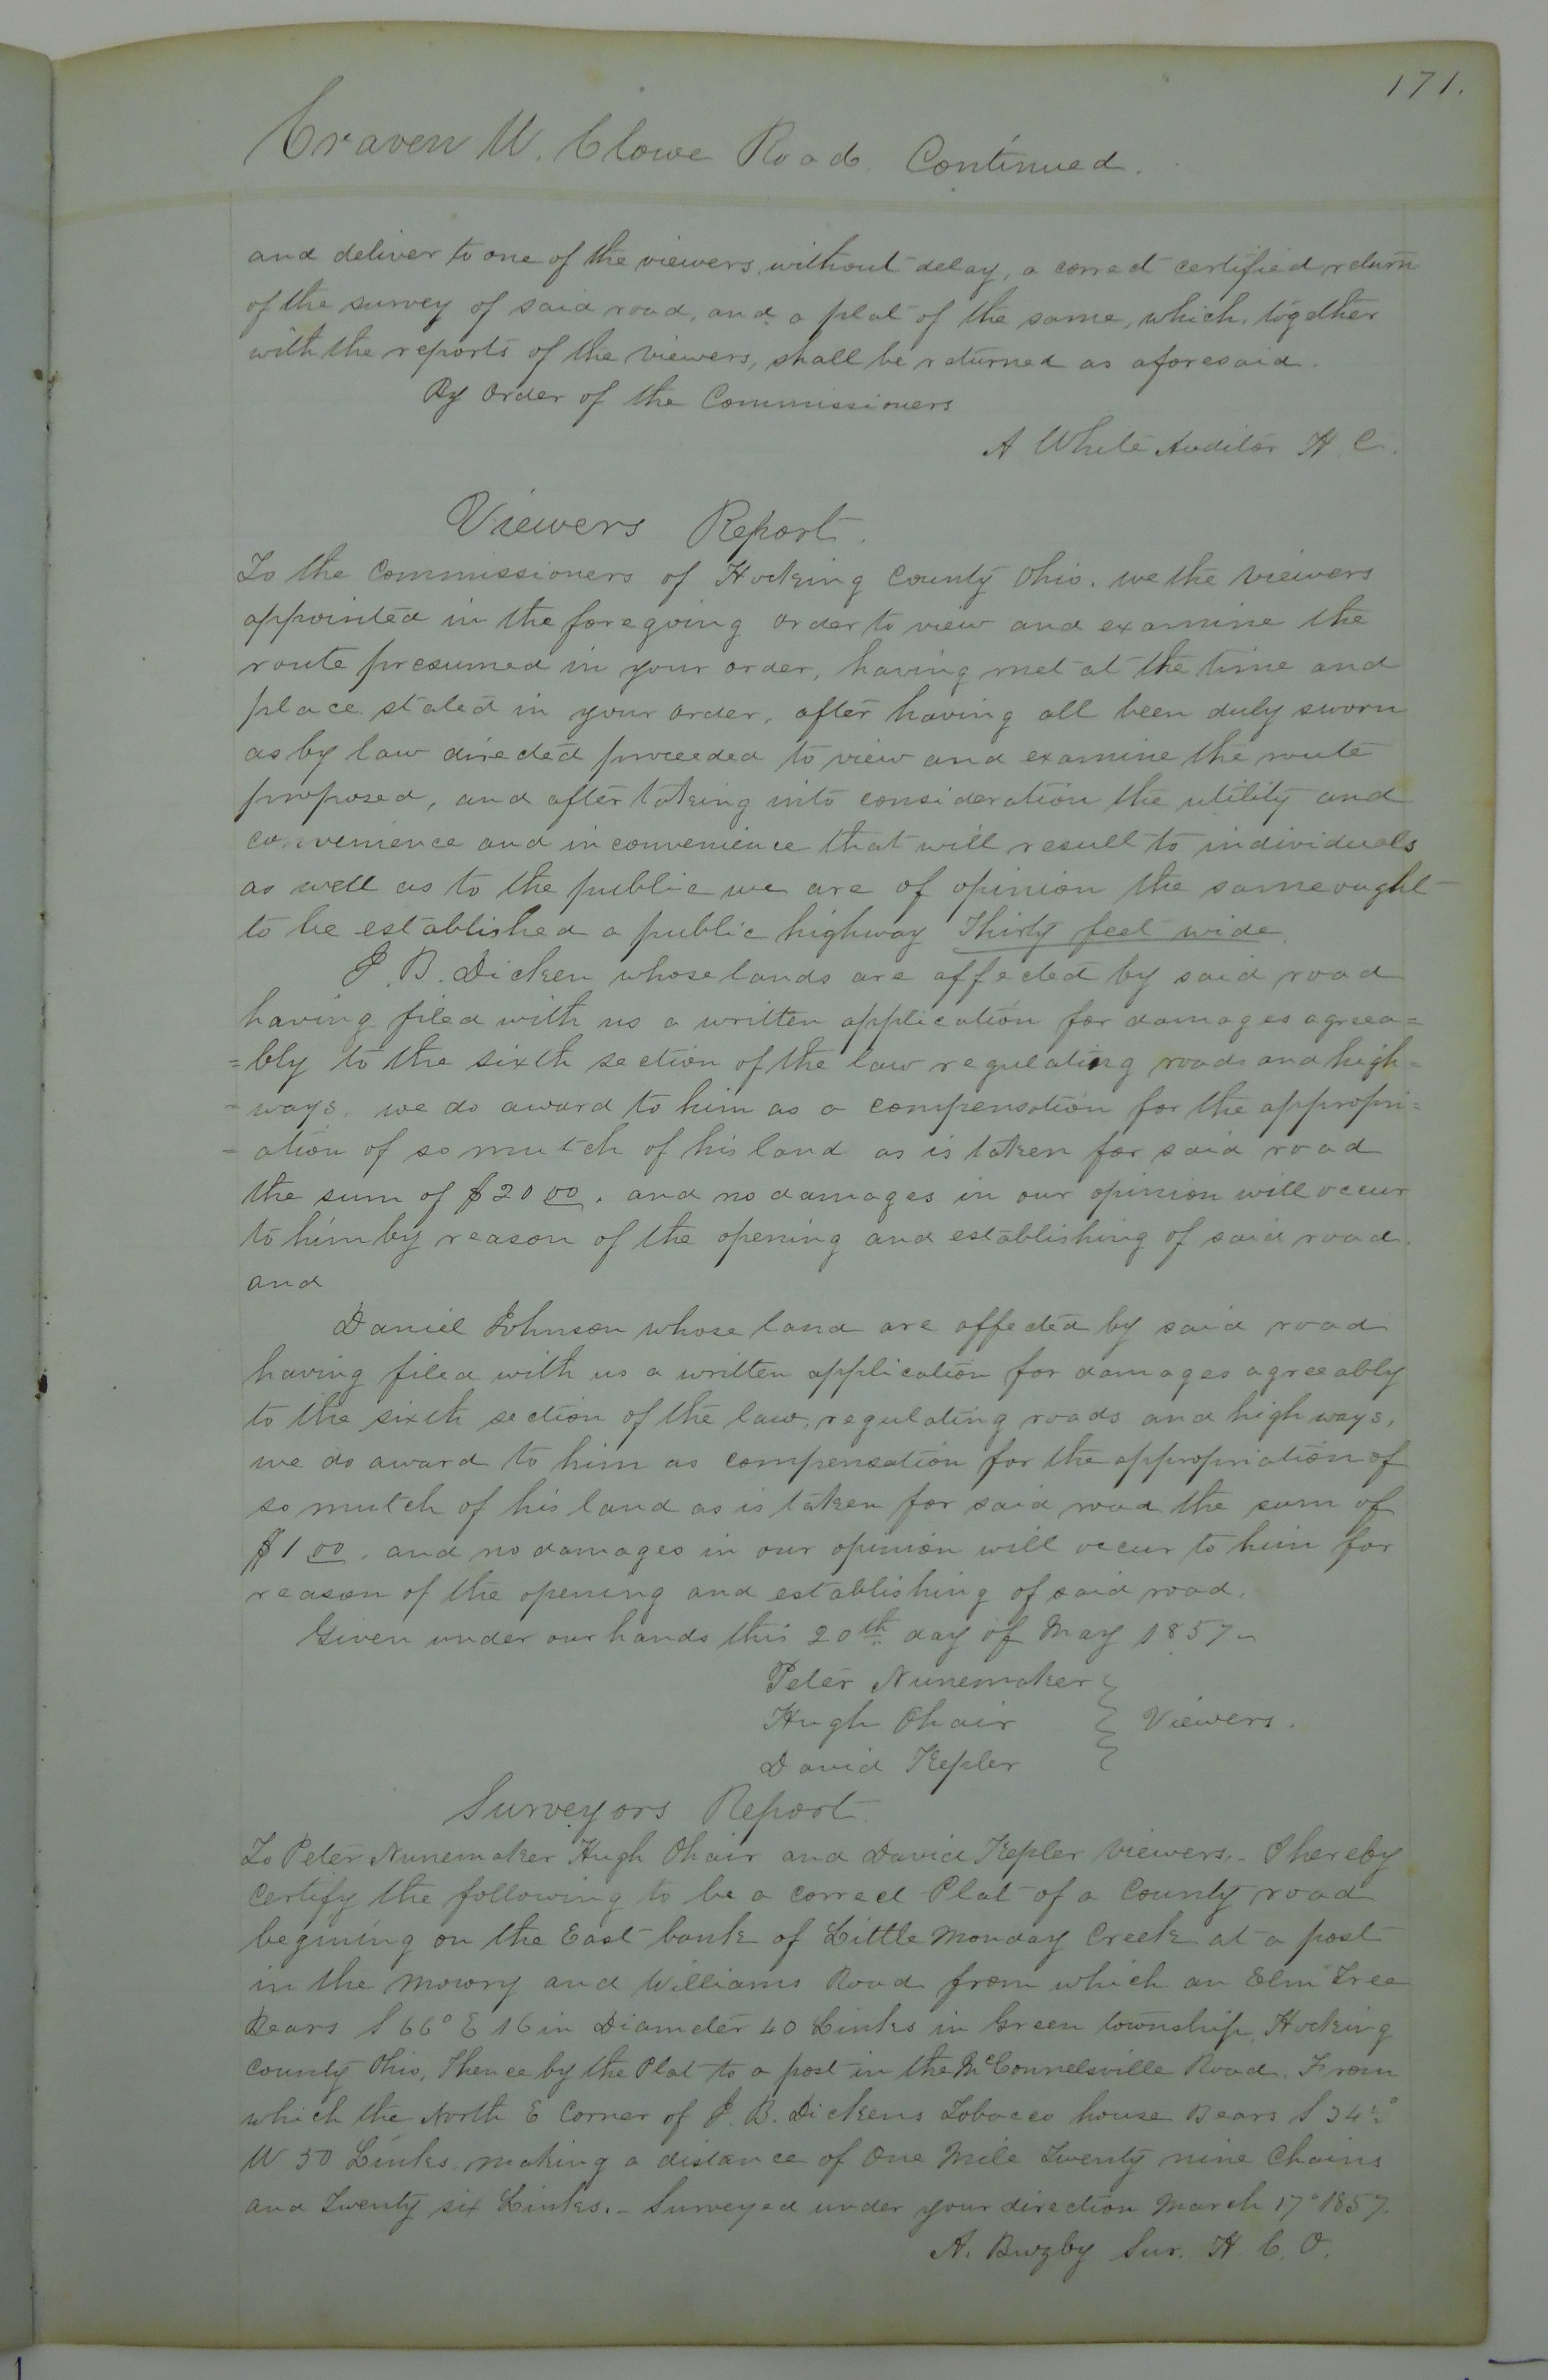 171.
Craven W. Clowe Road Continued.
and deliver to one of the viewers, without delay, a correct certified return
of the survey of said road, and a plat of the same, which, together
with the reports of the viewers, shall be returned as aforesaid.
By order of the Commissioners
A White Auditor H. C.
Viewers Report.
To the Commissioners of Hocking County Ohio. we the viewers
appointed in the foregoing order to view and examine the
route presumed in your order, having met at the time and
place stated in your order, after having all been duly sworn
as by law directed proceeded to view and examine the route
proposed, and after taking into consideration the utility and
convenience and inconvenience that will result to individuals
as well as to the public we are of opinion the same ought
to be established a public highway Thirty feet wide.
J. B. Dicken whose lands are affected by said road
having filed with us a written application for damages agreea=
=bly to the sixth section of the law regulating roads and high=
=ways, we do award to him as a compensation for the appropri=
=ation of so mutch of his land as is taken for said road
the sum of $20 00. and no damages in our opinion will occur
to him by reason of the opening and establishing of said road.
and
Daniel Johnson whose land are affected by said road
having filed with us a written application for damages agreeably
to the sixth section of the law, regulating roads and high ways,
we do award to him as compensation for the appropriation of
so mutch of his land as is taken for said road the sum of
$1 00. and no damages in our opinion will occur to him for
reason of the opening and establishing of said road.
Given under our hands this 20th day of May 1857-
Peter Nunemaker
Hugh Ohair } Viewers.
David Kepler
Surveyors Report
To Peter Nunemaker Hugh Ohair and David Kepler Viewers.- I hereby
certify the following to be a correct Plat of a County road
begining on the East bank of Little Monday Creek at a post
in the Mowry and Williams Road from which an Elm Tree
Bears S 66° E 16 in Diameter 40 Links in Green township, Hocking
County Ohio, Thence by the Plat to a post in the McConnelsville Road. From
which the North E Corner of J. B. Dickens Tobacco house Bears S 34½°
W 50 Links making a distance of One Mile Twenty nine Chains
and Twenty six Links.- Surveyed under your direction March 17" 1857.
A. Buzby Sur. H. C. O.